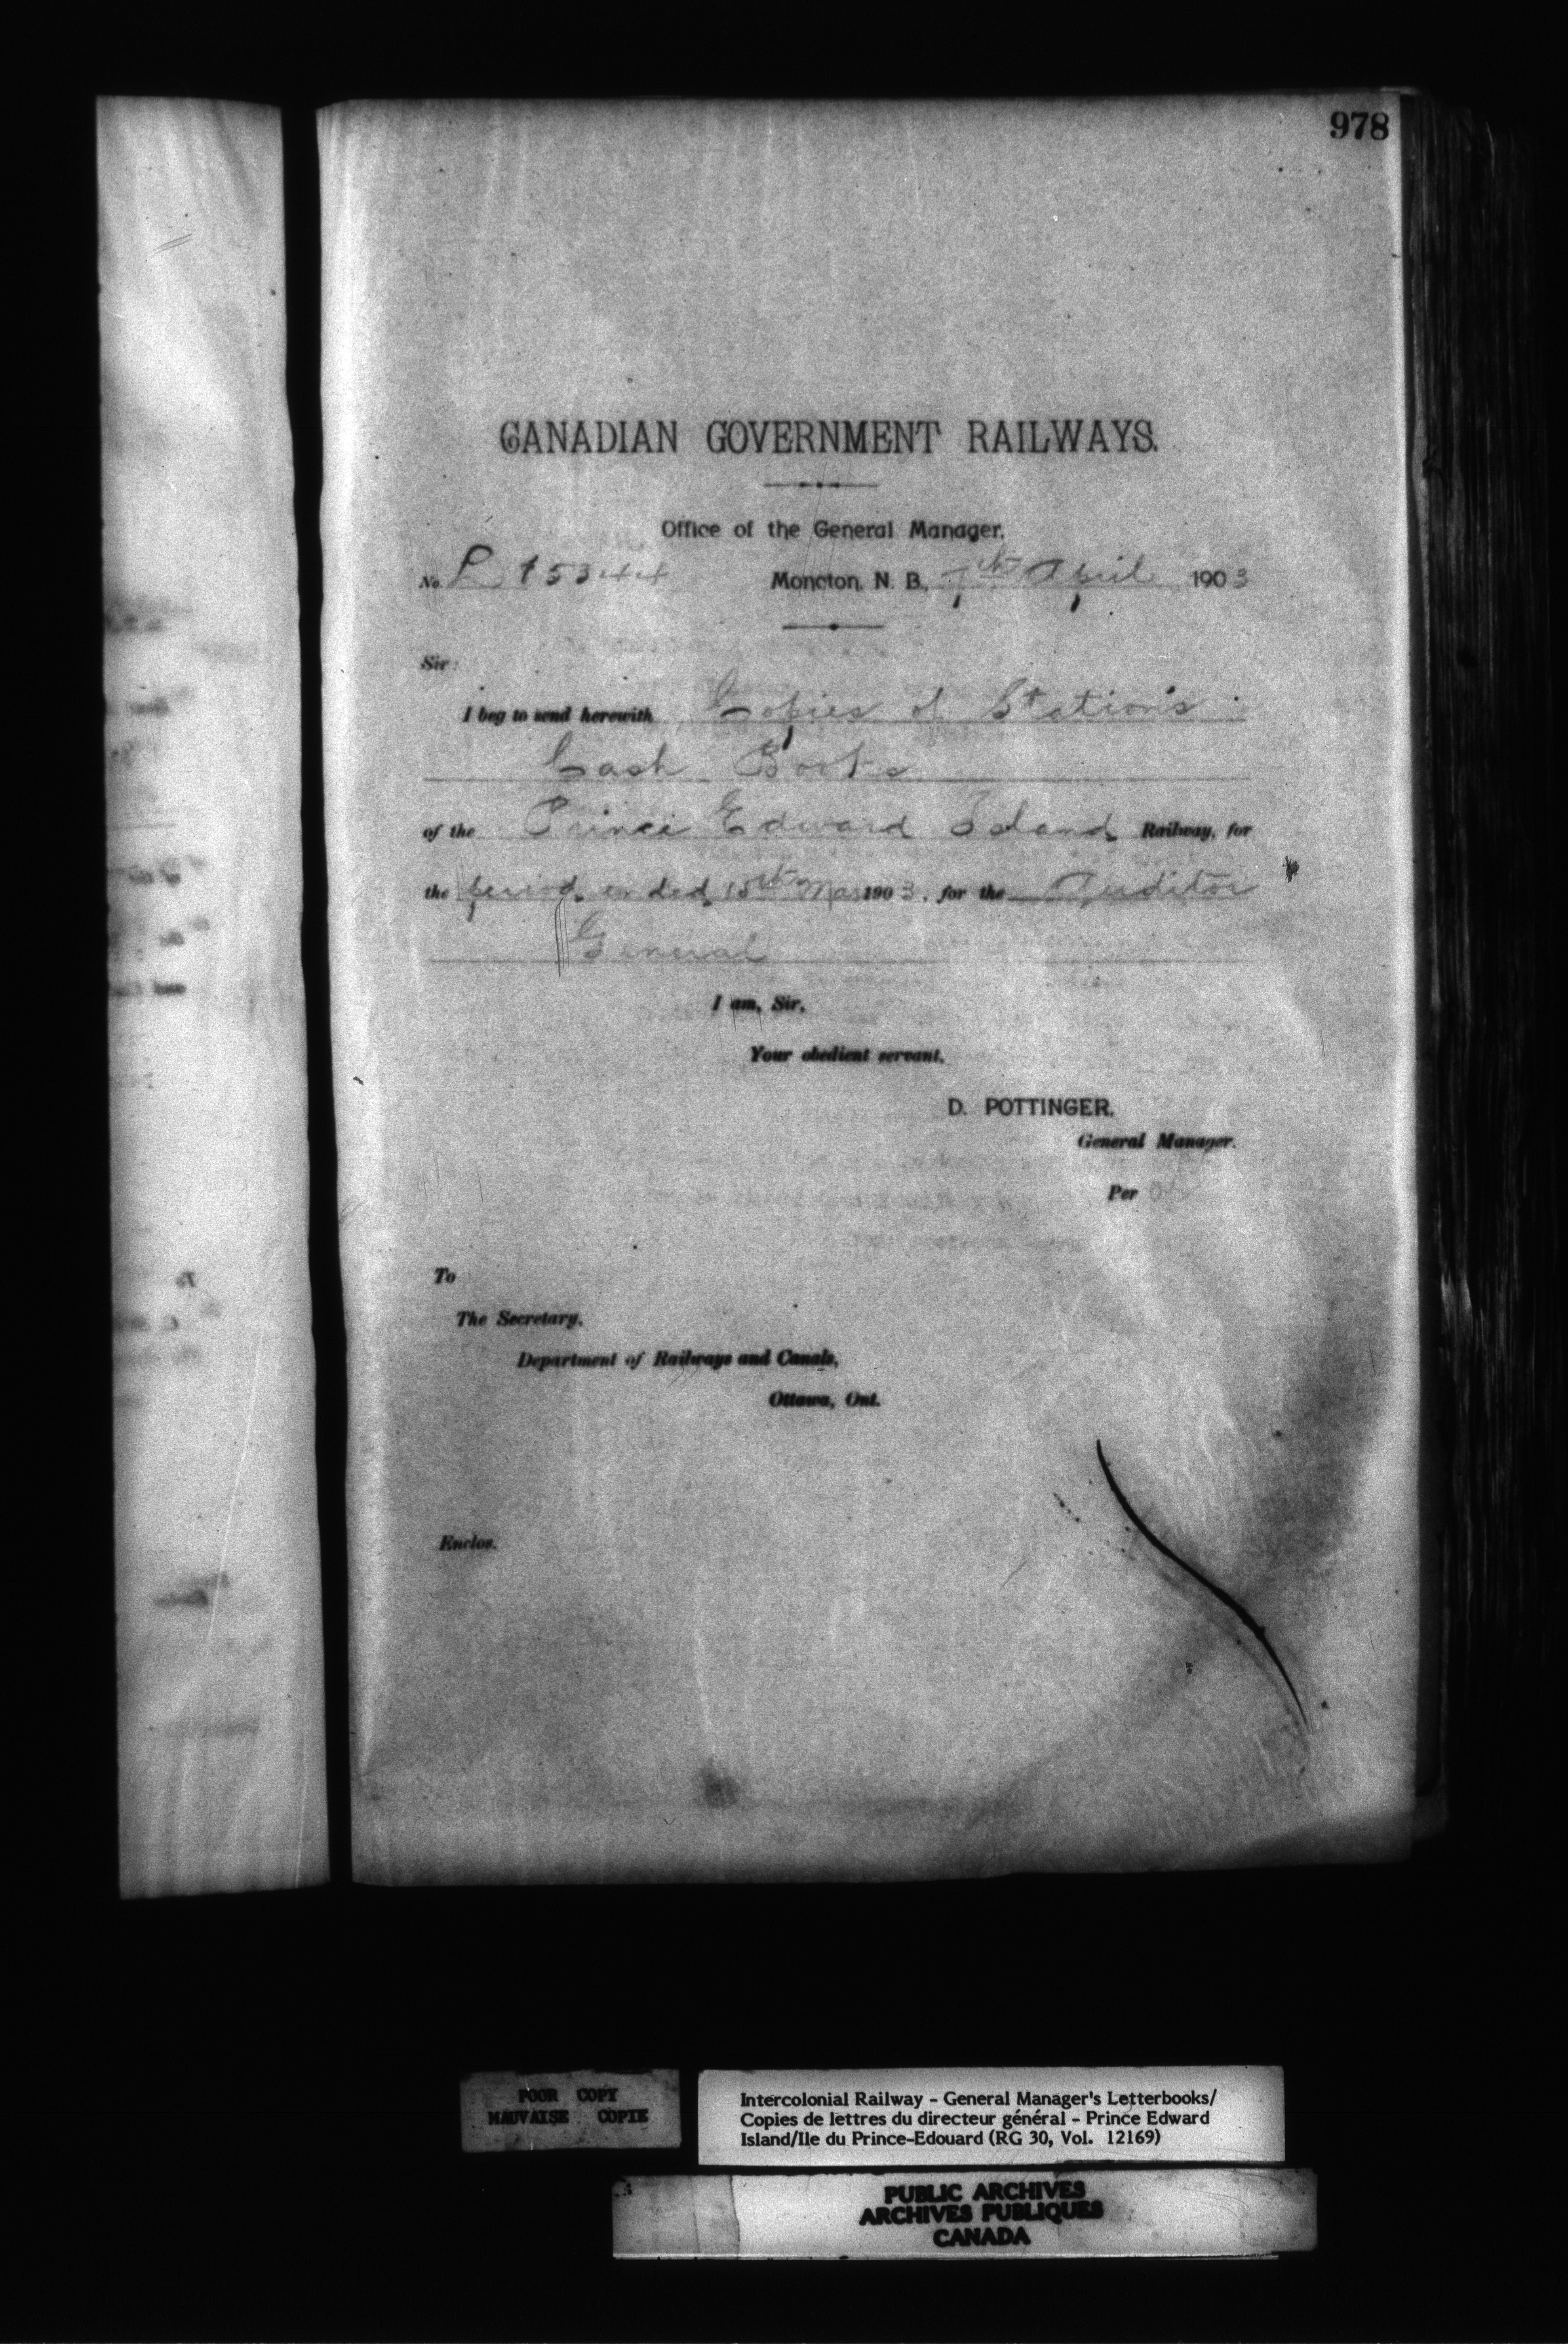 978
CANADIAN GOVERNMENT RAILWAYS.
Office of the General Manager.
No. P 15344 Moncton, N. B., 7th April 1903
Sir:
I beg to send herewith Copies of Station's
Cash Books
of the Prince Edward Island Railway, for
the period ended 15th Mar 1903, for the Auditor
General
I am, Sir,
Your obedient servant,
D. POTTINGER.
General Manager.
Per
To
The Secretary,
Department of Railways and Canals,
Ottawa, Ont.
Enclos.
POOR COPY
MAUVAISE COPIE
Intercolonial Railway - General Manager's Letterbooks/
Copies de lettres du directeur général - Prince Edward
Island/Ile du Prince-Edouard (RG 30, Vol. 12169)
PUBLIC ARCHIVES
ARCHIVES PUBLIQUES
CANADA